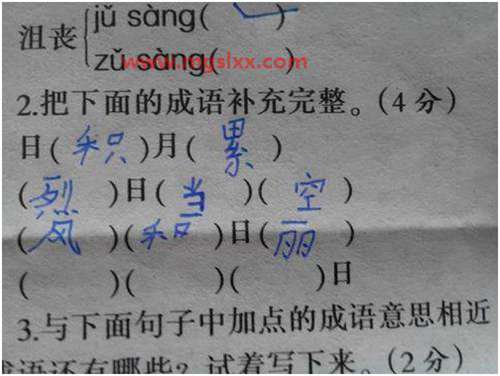 jǔ sàng( )
沮丧
zǔ sàng( )
www.mgslxx.com
2.把下面的成语补充完整。(4分)
日(积)月(累)
(烈)日(当)(空)
(风)(和)日(丽)
( )( )( )日
3.与下面句子中加点的成语意思相近
语还有哪些?试着写下来。(2分)